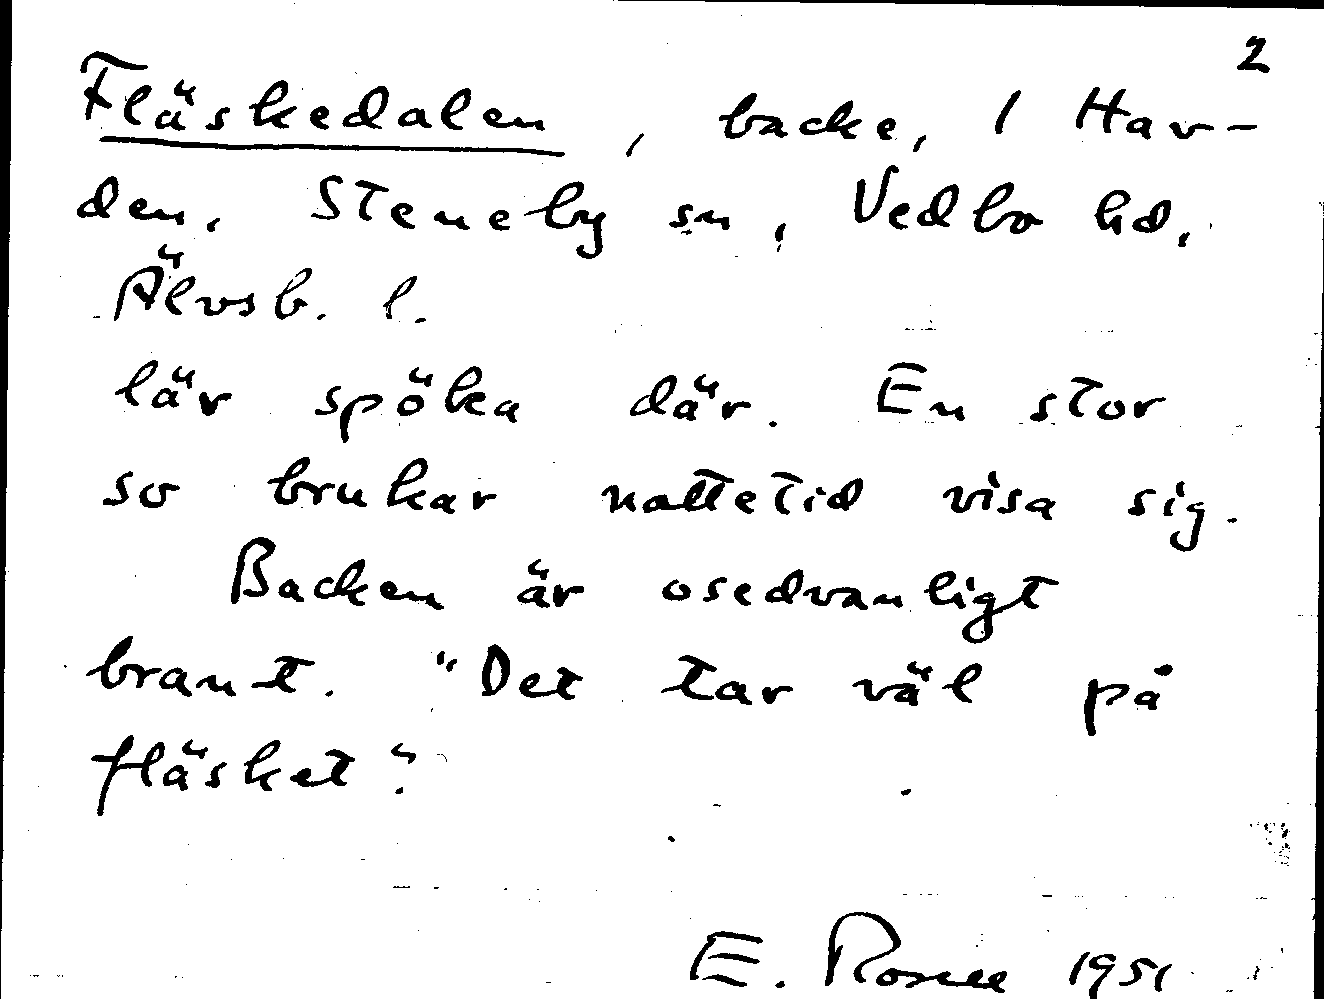 2
Fläskedalen, backe, 1 Hav-
den, Steneby sn, Vedbo hd,
Älvsb. l.
lär spöka där. En stor
so brukar nattetid visa sig.
Backen är osedvanligt
brant. "Det tar väl på
fläsket".
E. 1951